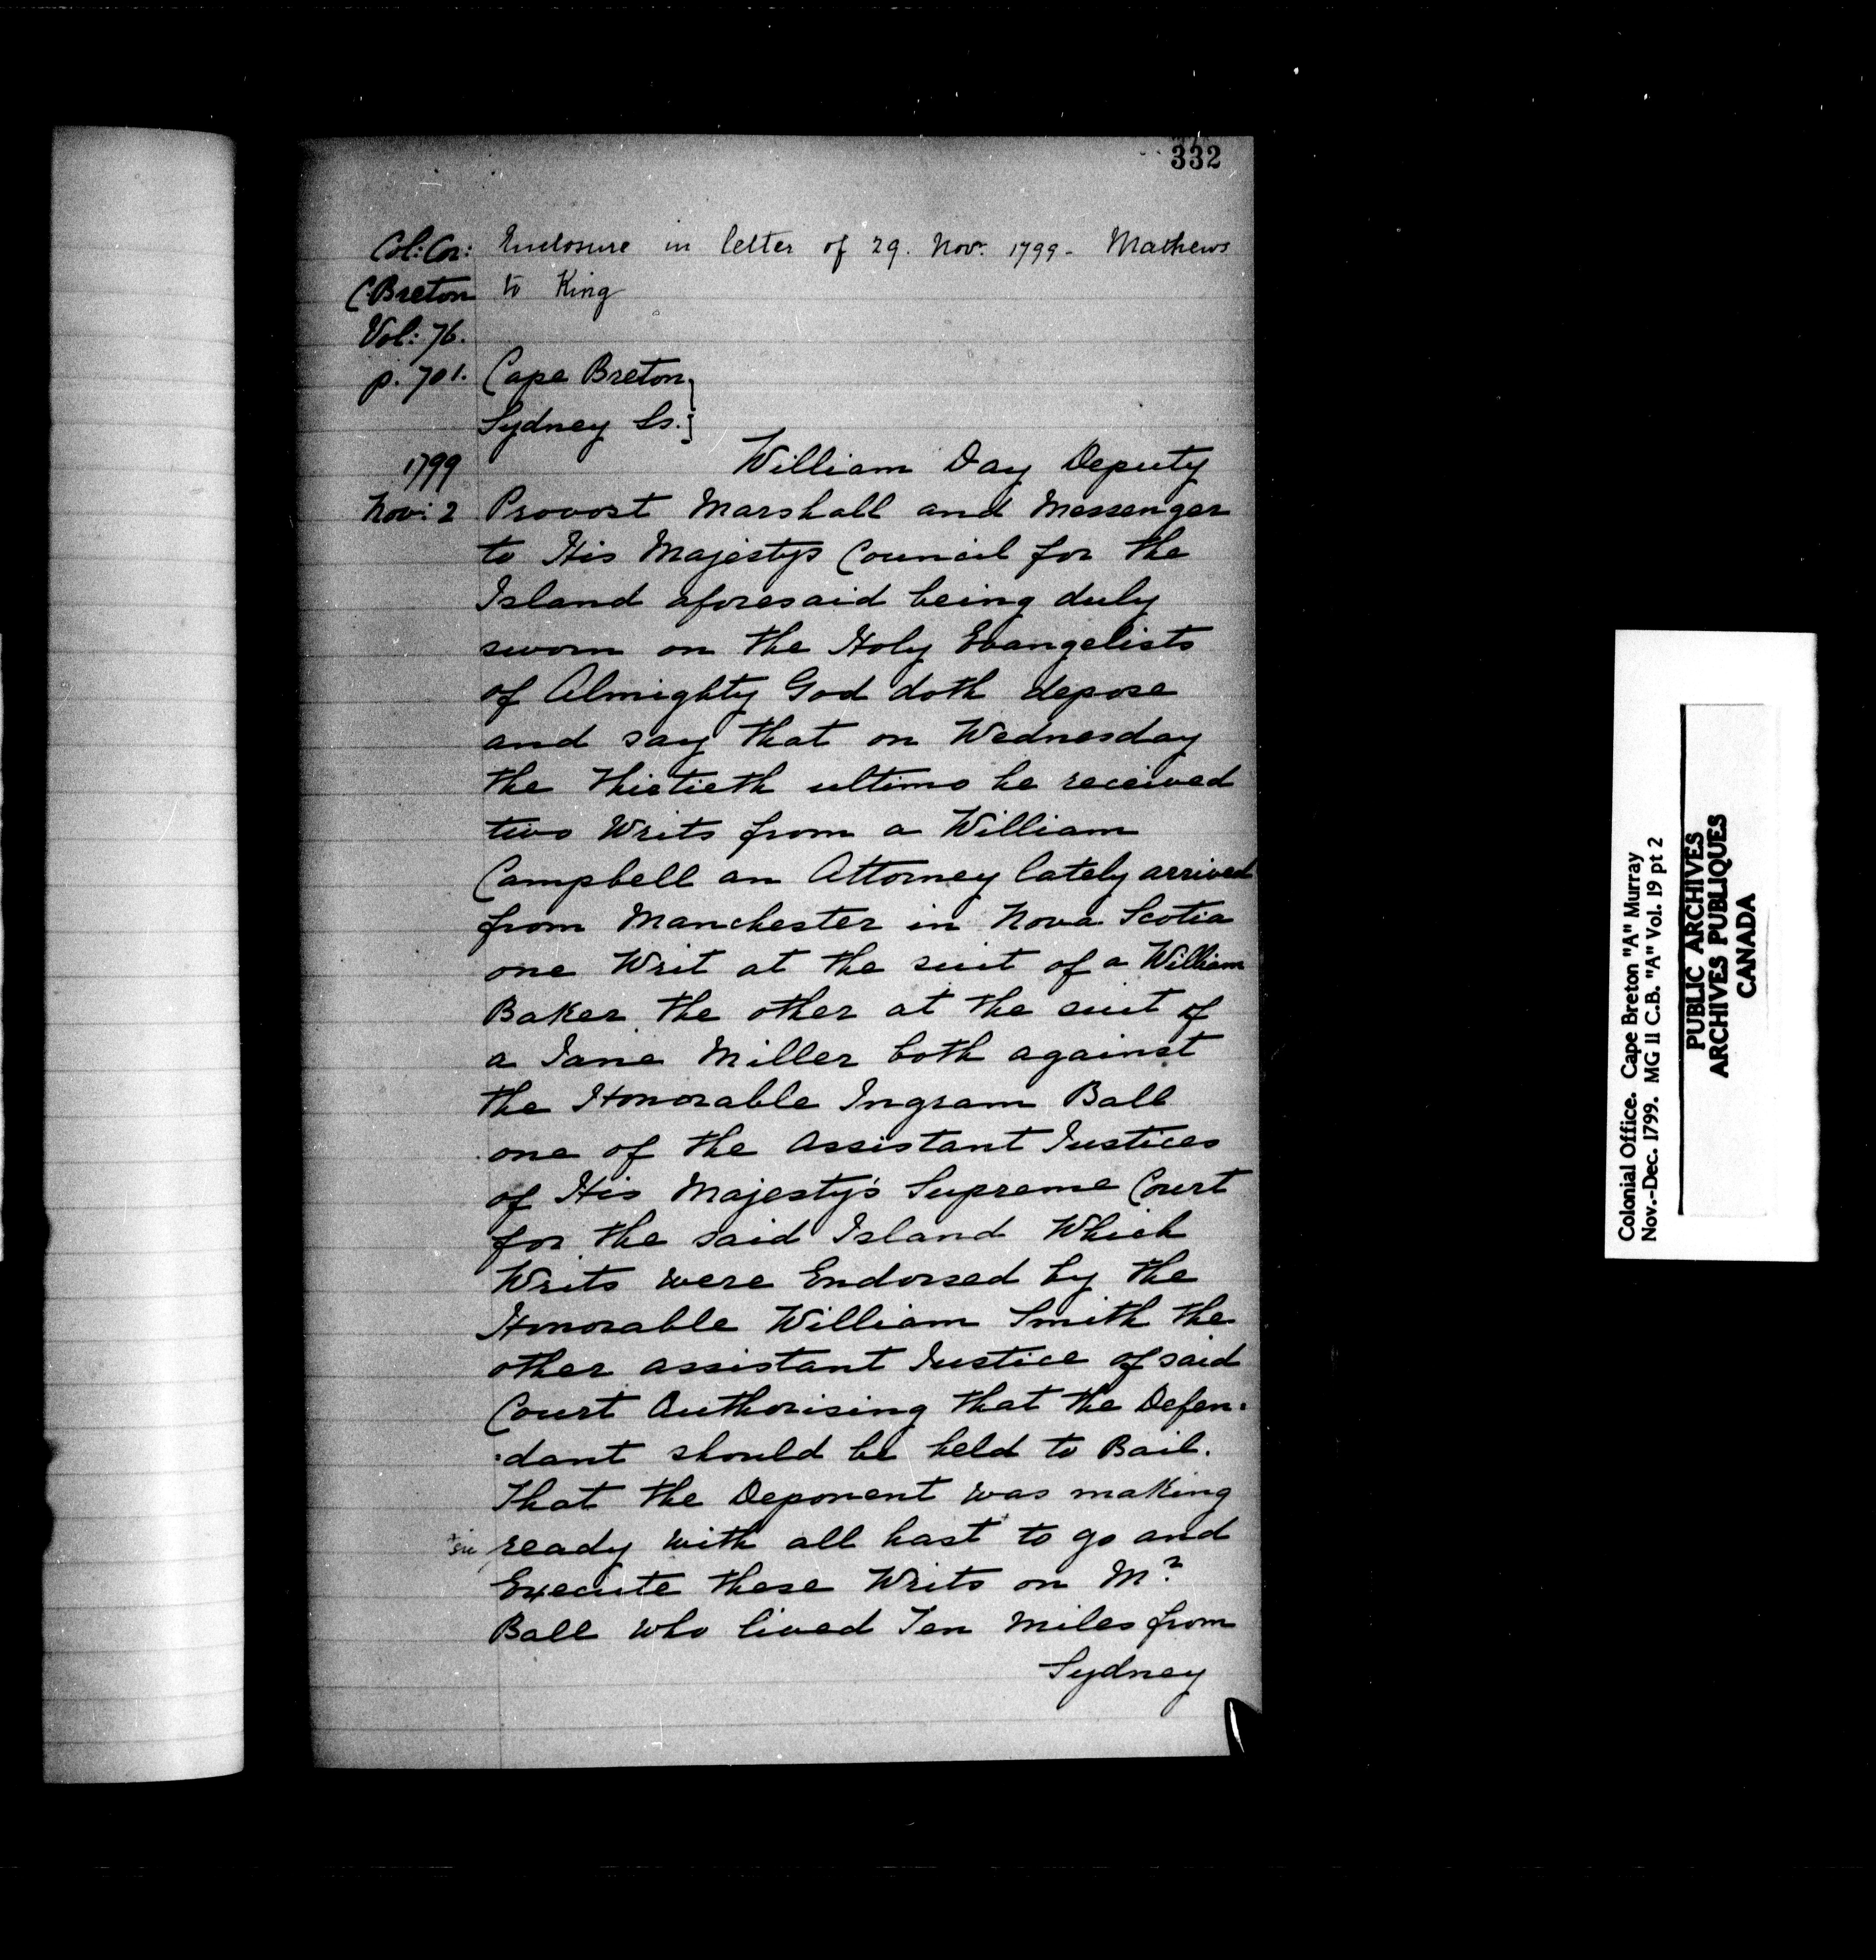 332
Col: Cor: Enclosure in letter of 29. Nov. 1799 - Mathews
C. Breton to King
Vol: 76.
p. 701. Cape Breton
Sydney Ss.
1799 William Day Deputy
Nov: 2 Provost Marshall and Messenger
to His Majestys Council for the
Island aforesaid being duly
sworn on the Holy Evangelists
of Almighty God doth depose
and say that on Wednesday
the thirtieth ultimo he received
two Writs from a William
Campbell an Attorney lately arrived
from Manchester in Nova Scotia
one Writ at the suit of a William
Baker the other at the suit of
a Jane Miller both against
the Honorable Ingram Ball
one of the Assistant Justices
of His Majesty's Supreme Court
for the said Island Which
Writs were Endorsed by the
Honorable William Smith the
other assistant Justice of said
Court Authorising that the Defen-
-dant should be held to Bail.
That the Deponent was making
+ sic ready with all hast+ to go and
Execute these Writs on Mr.
Ball who lived Ten miles from
Sydney
Colonial Office. Cape Breton "A" Murray
Nov.-Dec. 1799. MG 11 C.B. "A" Vol. 19 pt 2
PUBLIC ARCHIVES
ARCHIVES PUBLIQUES
CANADA